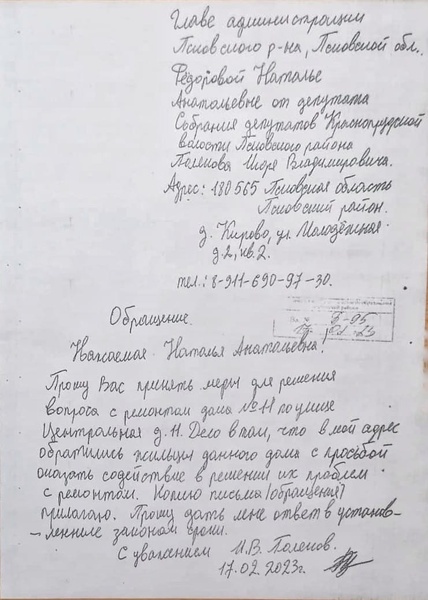 Главе администрации
Псковского р-на, Псковской обл.
Фёдоровой Наталье
Анатольевне от депутата
Собрания депутатов Краснопрудской
волости Псковского района
Полехова Игоря Владимировича.
Адрес: 180565 Псковская область
Псковский район.
д. Кирово, ул. Молодёжная
д.2, кв.2.
тел.: 8-911-690-97-30.
Обращение.
Наталья Анатольевна!
Прошу Вас принять меры для решения
вопроса с ремонтом дома №11 по улице
Центральная д. 11. Дело в том, что в мой адрес
обратились жильцы данного дома с просьбой
оказать содействие в решении их проблем
с ремонтом. Копию письма (обращения)
прилагаю. Прошу дать мне ответ в установ-
-ленные законом сроки.
С уважением И.В. Полехов.
17.02.2023г.